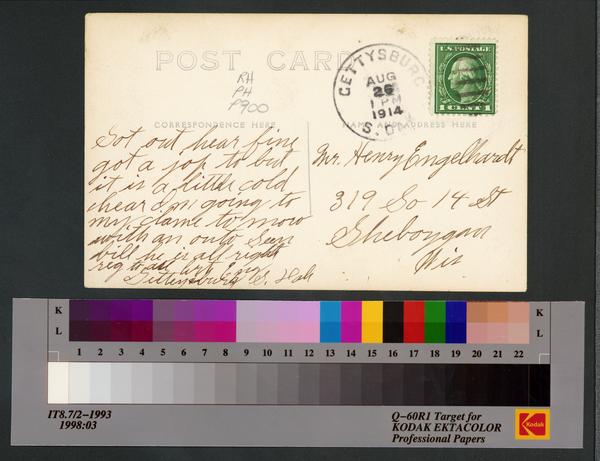 POST CARD
RH
PH
P900
GETTYSBURG
AUG
26
1 PM
1914
S. DAK
U.S. POSTAGE
1 CENT 1
CORRESPONDENCE HERE
NAME AND ADDRESS HERE
Got out hear fine
got a jop to but
it is a little cold
hear I m going to
my clame to morow
with an outo Seen
bill he is all right
Gettensburg S. Dak
Mr. Henry Engelhardt
319 So 14 St
Sheboygan
Wis
K
L
1 2 3 4 5 6 7 8 9 10 11 12 13 14 15 16 17 18 19 20 21 22
K
L
IT8.7/2-1993
1998:03
Q-60R1 Target for
KODAK EKTACOLOR
Professional Papers
Kodak